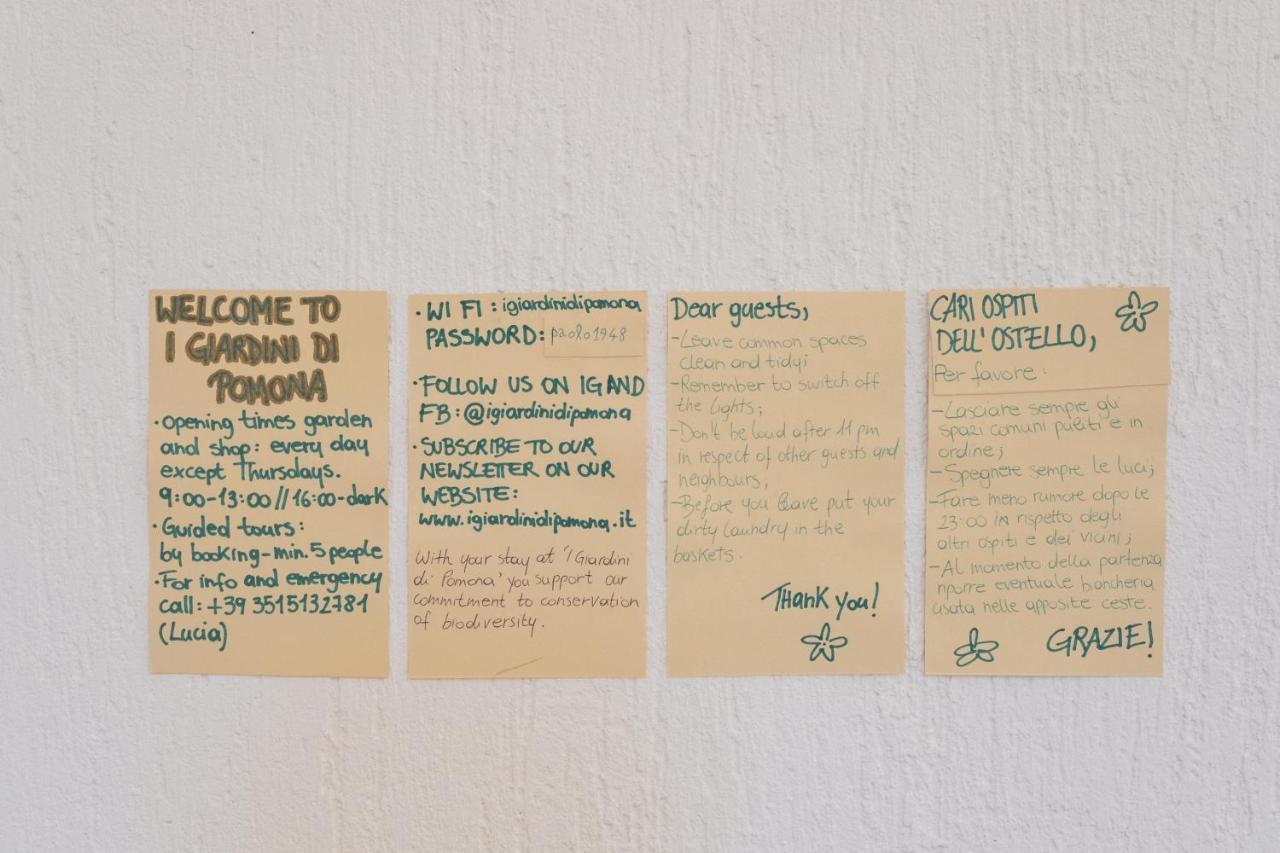 WELCOME TO
I GIARDINI DI
POMONA
• Opening times garden
and shop: every day
except Thursdays.
9:00-13:00 // 16:00-dark
• Guided tours:
by booking - min. 5 people
• For info and emergency
call: +39 3515132781
(Lucia)
• WI FI : igiardinidipomona
PASSWORD: paolo1948
• FOLLOW US ON IG AND
FB: @igiardinidipomona
• SUBSCRIBE TO OUR
NEWSLETTER ON OUR
WEBSITE:
www.igiardinidipomona.it
With your stay at 'I Giardini
di Pomona' you support our
commitment to conservation
of biodiversity.
Dear guests,
- Leave common spaces
clean and tidy;
- Remember to switch off
the lights;
- Don't be loud after 11 pm
in respect of other guests and
neighbours;
- Before you leave put your
dirty laundry in the
baskets.
Thank you!
CARI OSPITI
DELL'OSTELLO,
Per favore:
- Lasciare sempre gli
spazi comuni puliti e in
ordine;
- Spegnere sempre le luci;
- Fare meno rumore dopo le
23:00 in rispetto degli
altri ospiti e dei vicini;
- Al momento della partenza
riporre eventuale biancheria
usata nelle apposite ceste.
GRAZIE!